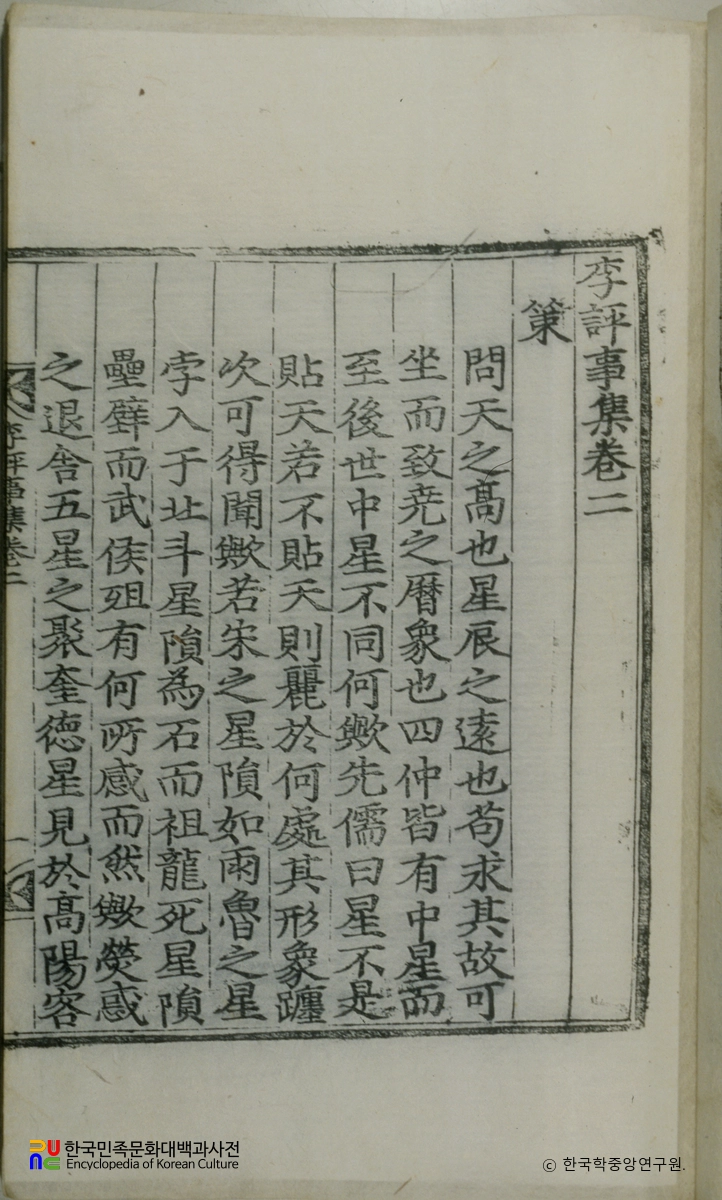 李評事集卷二
策
問天之髙也星辰之遠也苟求其故可
坐而致尭之曆象也四仲皆有中星而
至後世中星不同何歟先儒曰星不是
貼天若不貼天則麗於何處其形象躔
次可得聞歟若宋之星隕如雨魯之星
孛入于北斗星隕為石而祖龍死星隕
壘壁而武侯殂有何所感而然歟熒惑
之退舍五星之聚奎德星見於髙陽客
李評事集卷二
一
한국민족문화대백과사전
Encyclopedia of Korean Culture
ⓒ 한국학중앙연구원.